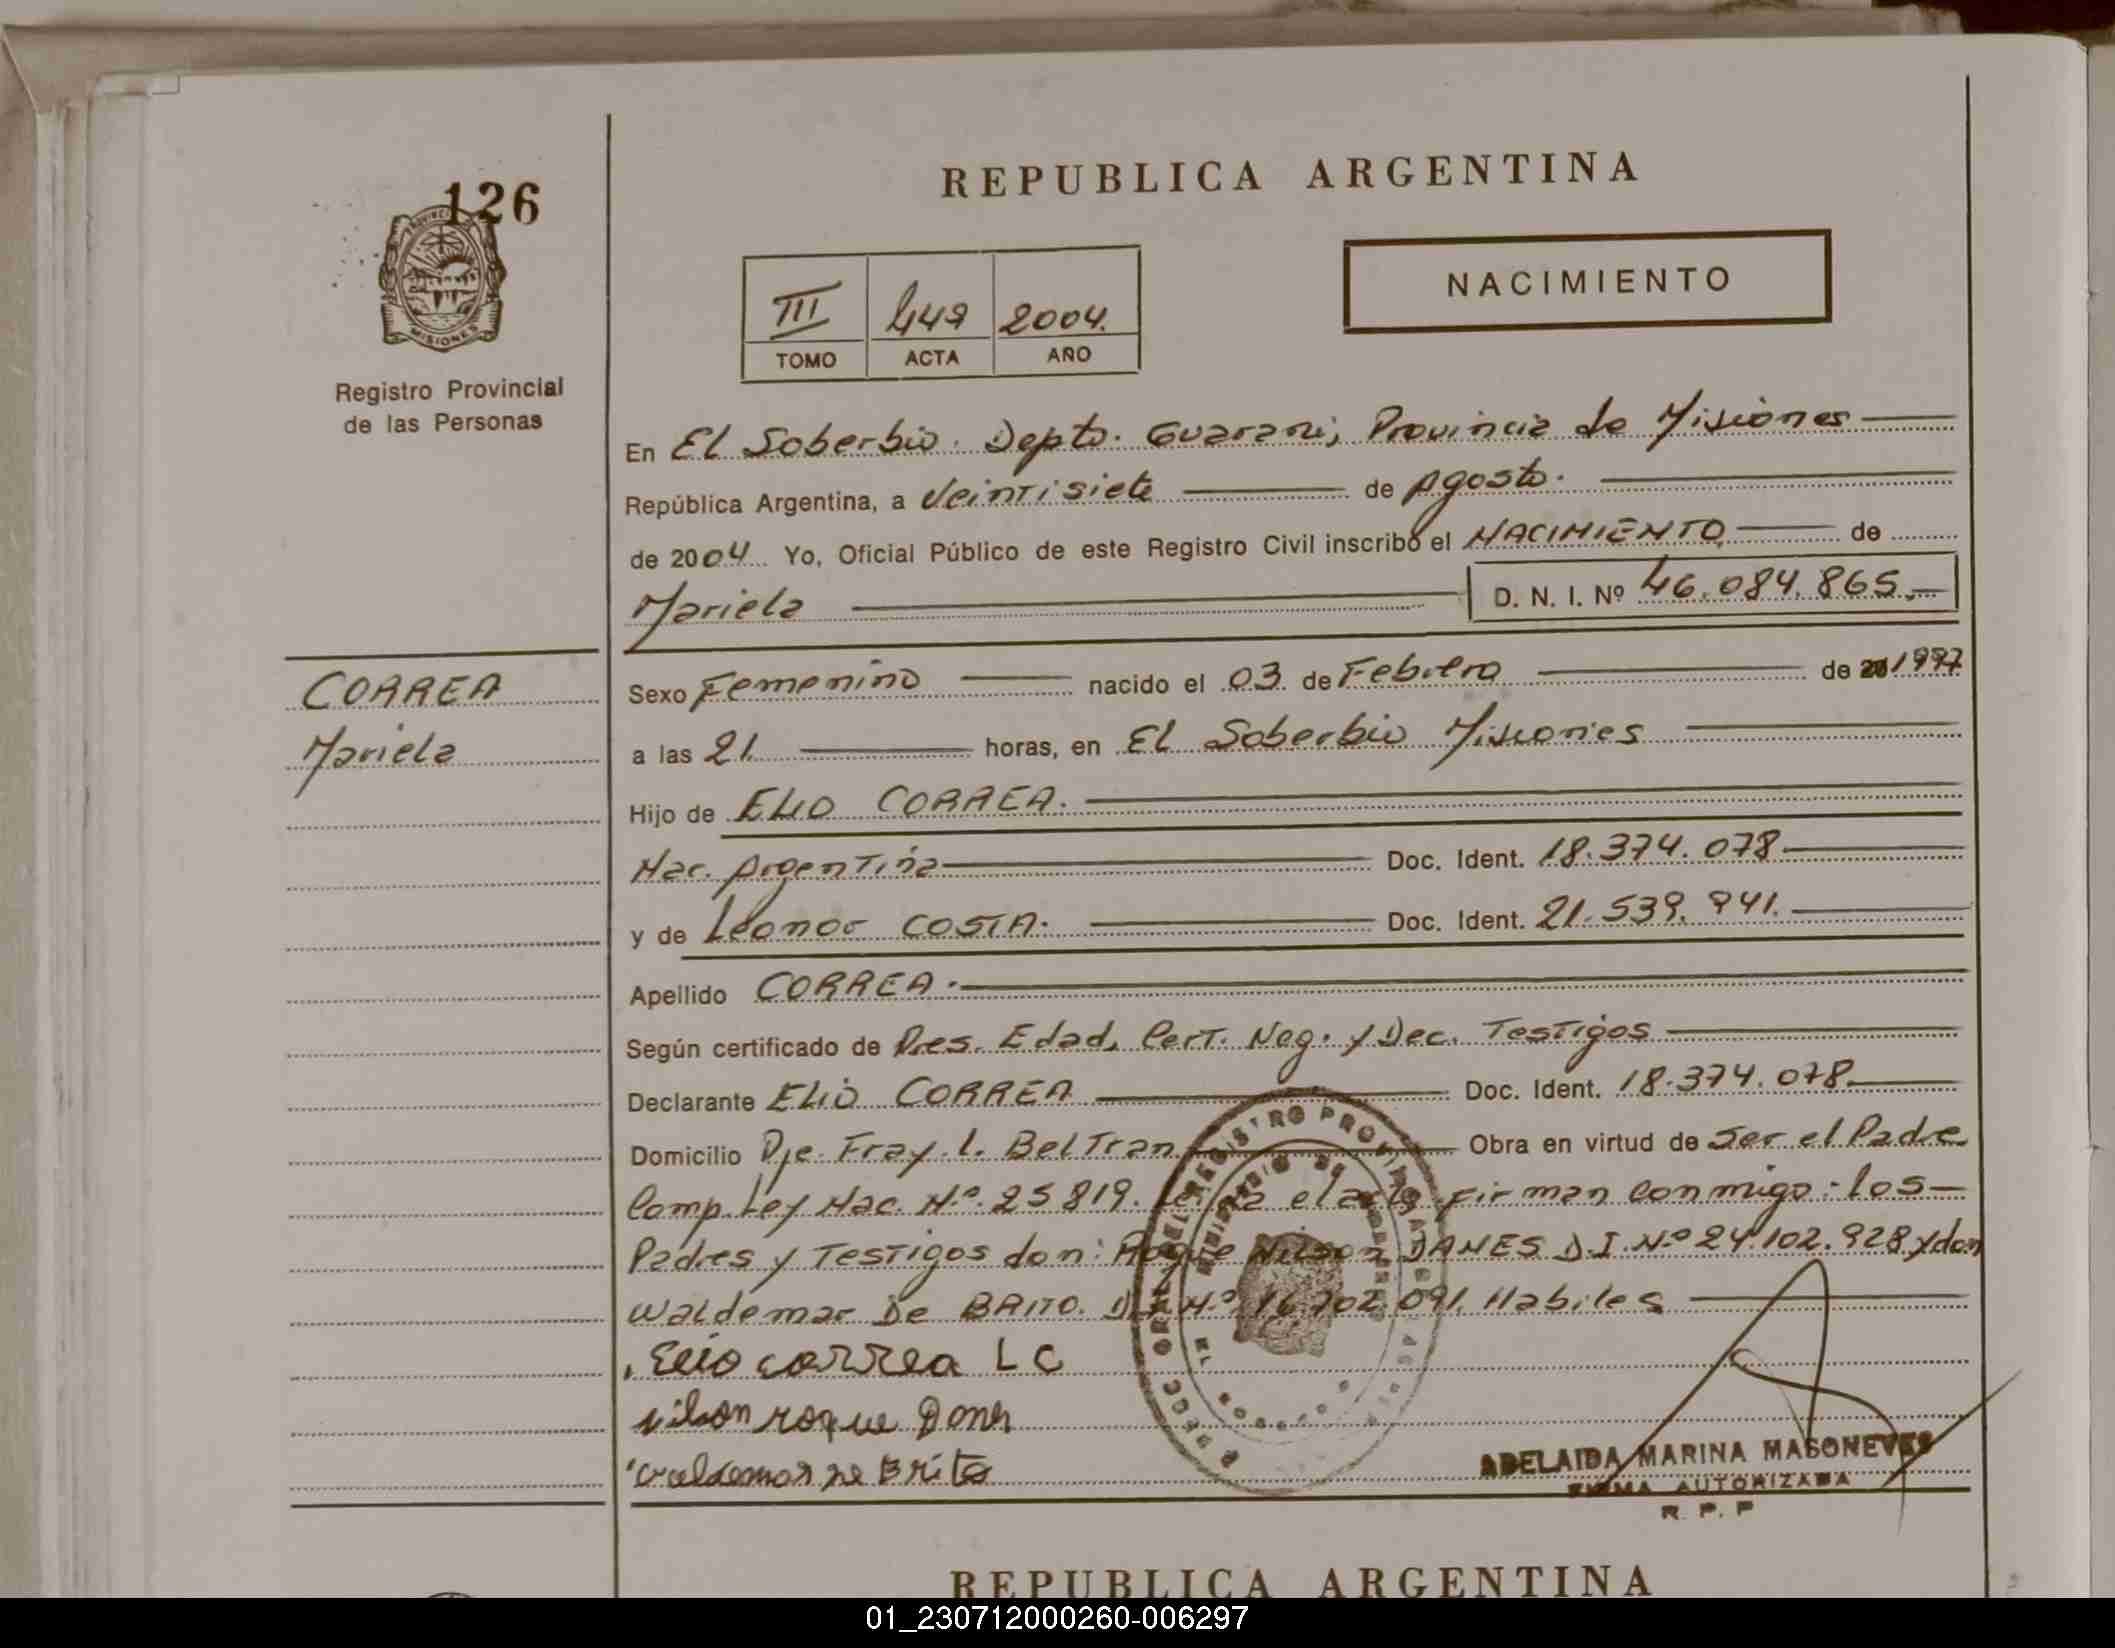 126
PROVINCIA
MISIONES
Registro Provincial
de las Personas
REPUBLICA ARGENTINA
NACIMIENTO
III 449 2004.
TOMO ACTA AÑO
En El Soberbio. Depto. Guarani, Provincia de Misiones
República Argentina, a Veintisiete de Agosto.
de 2004 Yo, Oficial Público de este Registro Civil inscribo el NACIMIENTO de
Mariela D. N. I. Nº 46.084.865.-
CORREA
Mariela
Sexo Femenino nacido el 03 de Febrero de 1997
a las 21. horas, en El Soberbio Misiones
Hijo de ELIO CORREA.
Nac. Argentina Doc. Ident. 18.374.078
y de Leonor COSTA. Doc. Ident. 21.539.941.
Apellido CORREA.
Según certificado de Pres. Edad, Cert. Neg. y Dec. Testigos
Declarante ELIO CORREA Doc. Ident. 18.374.078
Domicilio Pje. Fray. L. Beltran Obra en virtud de ser el Padre
Comp. Ley Nac. N.º 25819. Leida el acta firman conmigo: los
Padres y Testigos don: Roque Nilson DANES D.I. N.º 24.102.928 y don
Waldemar De BRITO. D.I. N.º 16.702.091. Habiles
Elio correa L C
nilson roque Danes
valdemar de Brito
ADELAIDA MARINA MASONEVES
FIRMA AUTORIZADA
R. P. P
REPUBLICA ARGENTINA
01_230712000260-006297